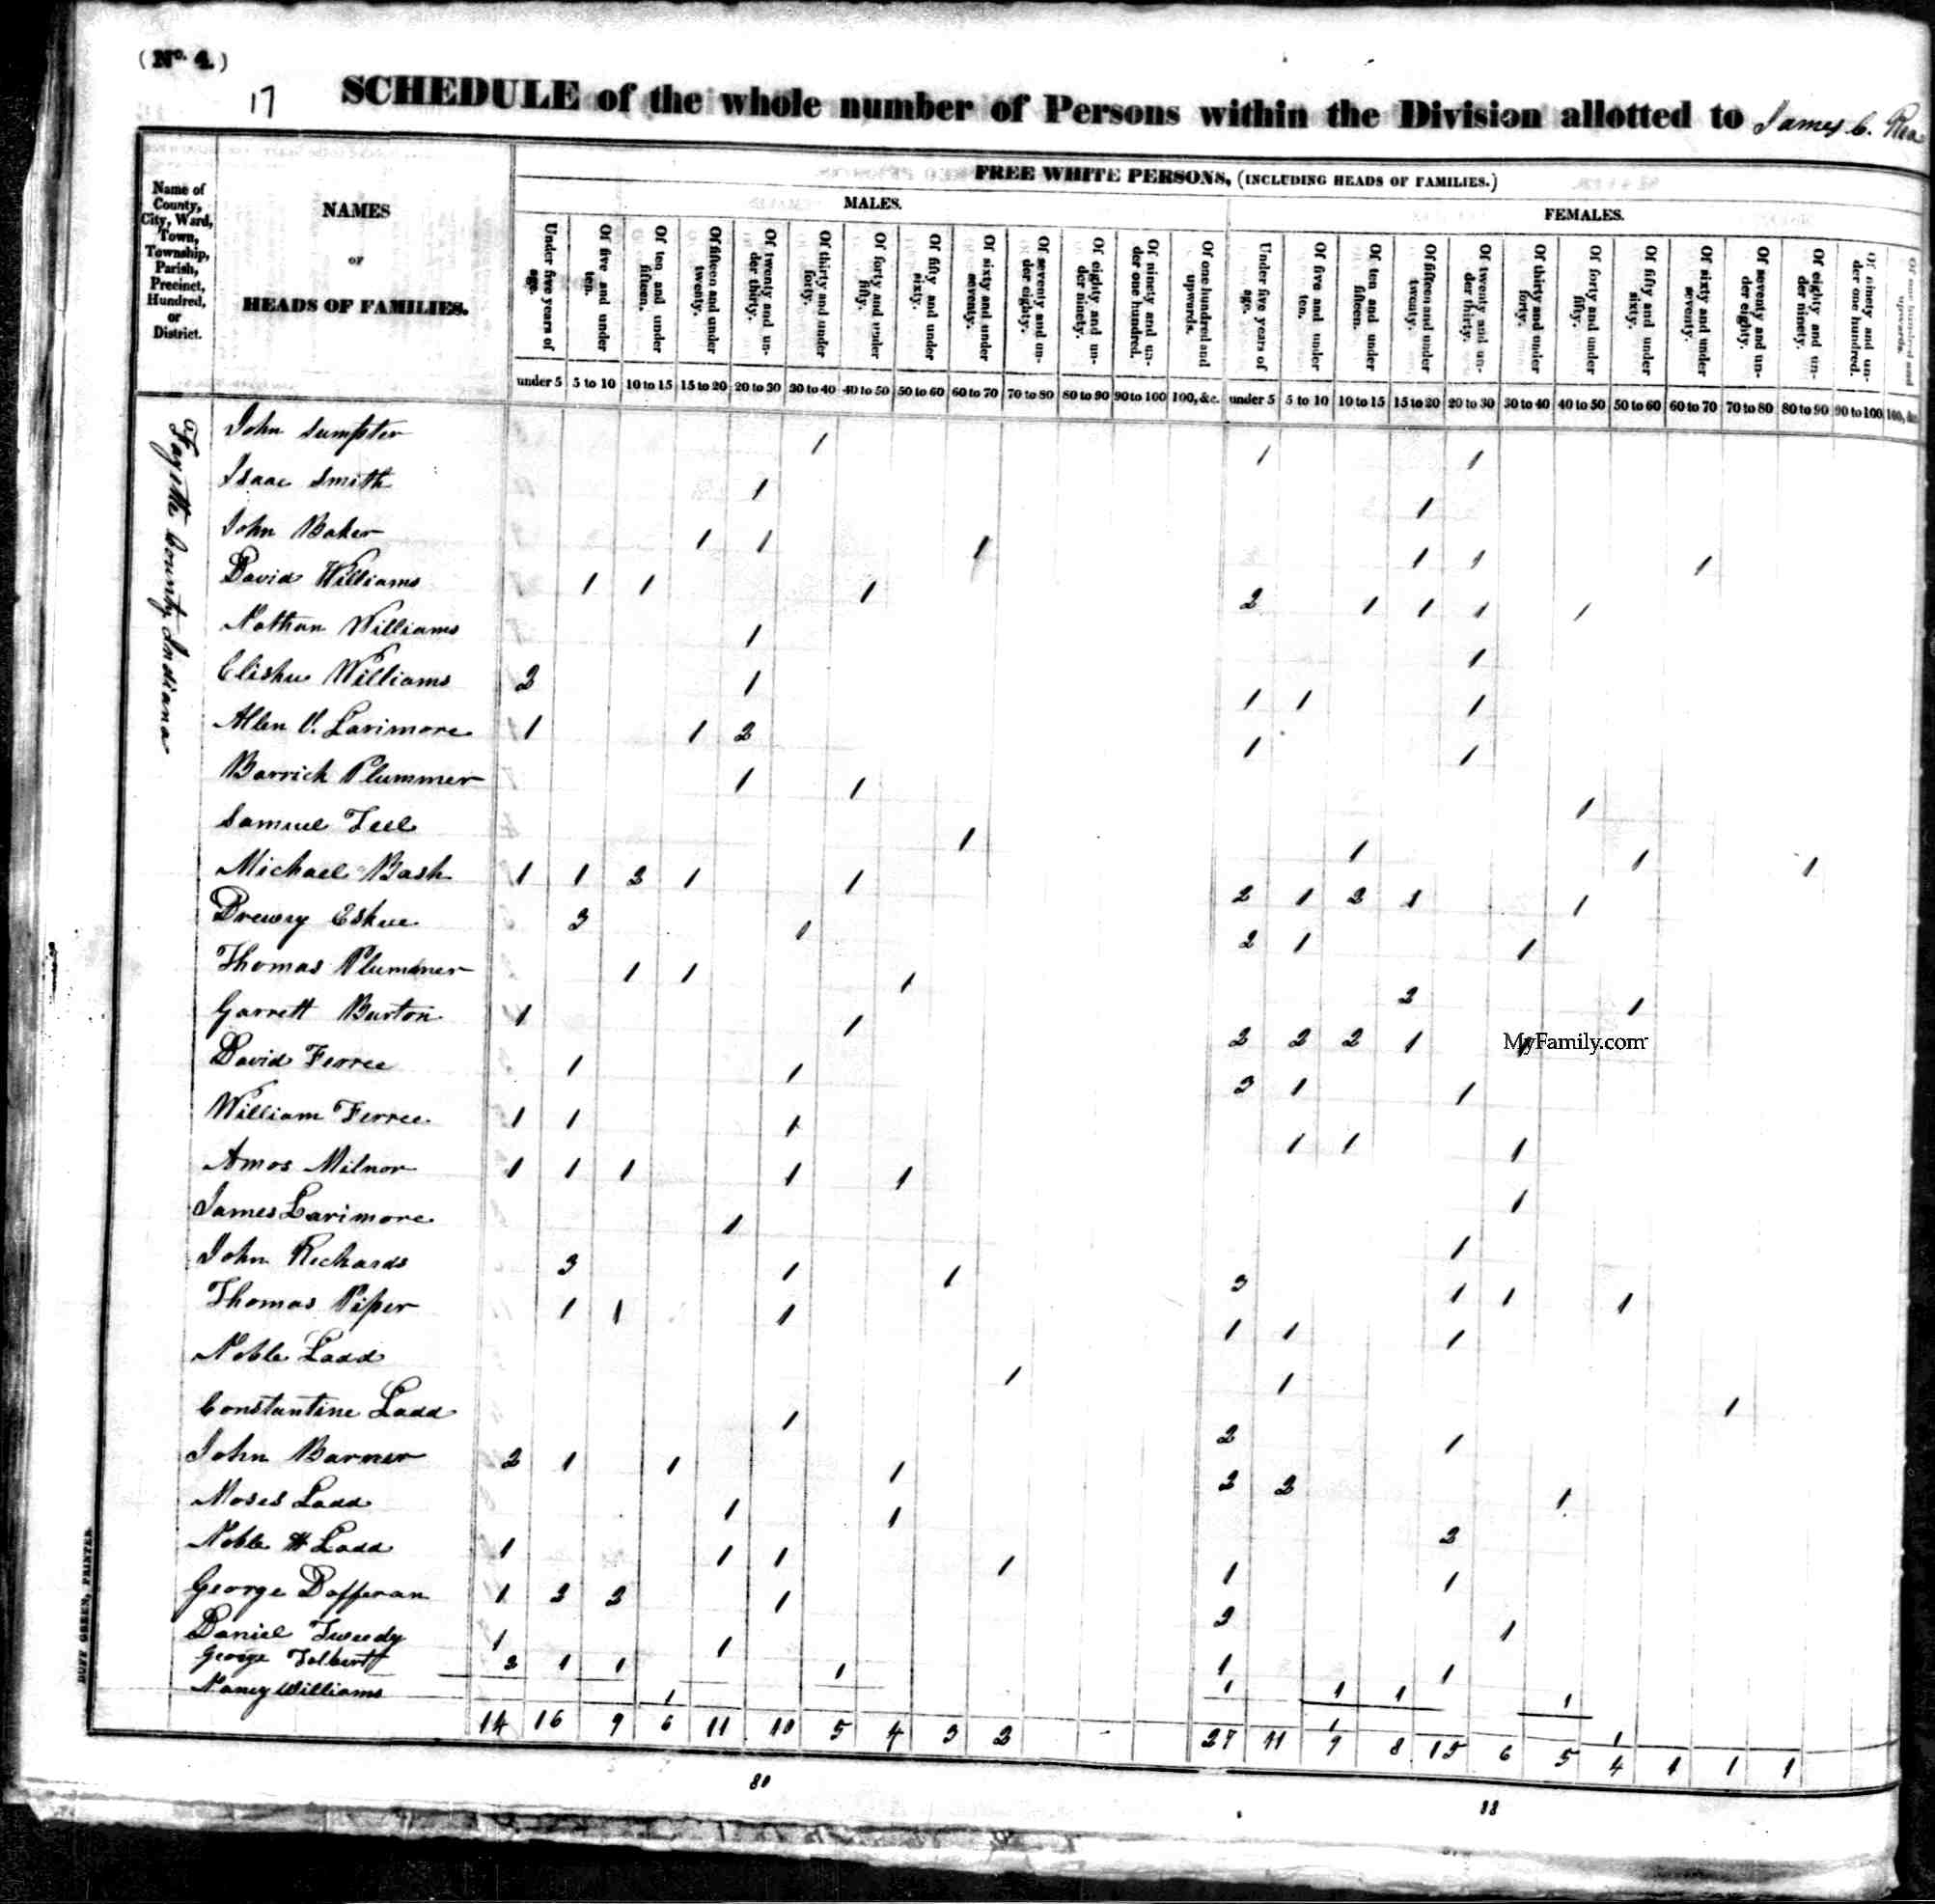 (No. 4.)
17
SCHEDULE of the whole number of Persons within the Division allotted to James C. Rea
FREE WHITE PERSONS, (INCLUDING HEADS OF FAMILIES.)
MALES. FEMALES.
Name of County, City, Ward, Town, Township, Parish, Precinct, Hundred, or District.
NAMES
OF
HEADS OF FAMILIES.
Under five years of age.
Of five and under ten.
Of ten and under fifteen.
Of fifteen and under twenty.
Of twenty and under thirty.
Of thirty and under forty.
Of forty and under fifty.
Of fifty and under sixty.
Of sixty and under seventy.
Of seventy and under eighty.
Of eighty and under ninety.
Of ninety and under one hundred.
Of one hundred and upwards.
Under five years of age.
Of five and under ten.
Of ten and under fifteen.
Of fifteen and under twenty.
Of twenty and under thirty.
Of thirty and under forty.
Of forty and under fifty.
Of fifty and under sixty.
Of sixty and under seventy.
Of seventy and under eighty.
Of eighty and under ninety.
Of ninety and under one hundred.
Of one hundred and upwards.
under 5 5 to 10 10 to 15 15 to 20 20 to 30 30 to 40 40 to 50 50 to 60 60 to 70 70 to 80 80 to 90 90 to 100 100, &c. under 5 5 to 10 10 to 15 15 to 20 20 to 30 30 to 40 40 to 50 50 to 60 60 to 70 70 to 80 80 to 90 90 to 100 100, &c.
Fayette County, Indiana
John Sumpter 1 1 1
Isaac Smith 1 1
John Baker 1 1 1 1 1 1
David Williams 1 1 1 2 1 1 1 1
Nathan Williams 1 1
Elisha Williams 2 1 1 1 1
Allen V. Larimore 1 1 2 1 1
Barrick Plummer 1 1 1
Samuel Teel 1 1 1 1
Michael Bash 1 1 2 1 1 2 1 2 1 1
Drewry Eskue 3 1 2 1 1
Thomas Plummer 1 1 1 2 1
Garrett Burton 1 1 2 2 2 1 1
MyFamily.com
David Ferree 1 1 3 1 1
William Ferree 1 1 1 1 1 1
Amos Milnor 1 1 1 1 1 1
James Larimore 1 1
John Richards 3 1 1 3 1 1 1
Thomas Piper 1 1 1 1 1 1
Noble Ladd 1 1 1
Constantine Ladd 1 2 1
John Barner 2 1 1 1 2 2 1
Moses Ladd 1 1 2
Noble H Ladd 1 1 1 1 1 1
George Dofferan 1 2 2 1 2 1
Daniel Tweedy 1 1 1 1
George Tolbert 2 1 1 1 1 1 1 1
Nancy Williams 1 1 1
14 16 9 6 11 10 5 4 3 2 27 11 9 8 15 6 5 4 1 1 1
80 88
DUFF GREEN, PRINTER